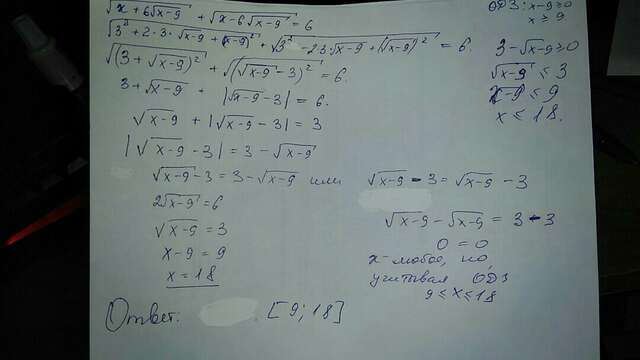 √x + 6√x-9 + √x-6√x-9 = 6
√3² + 2·3·√x-9 + (√x-9)² + √3² - 2·3·√x-9 + (√x-9)² = 6.
√(3 + √x-9)² + √(√x-9 - 3)² = 6.
3 + √x-9 + |√x-9 - 3| = 6.
√x-9 + |√x-9 - 3| = 3
|√x-9 - 3| = 3 - √x-9
√x-9 - 3 = 3 - √x-9 или
2√x-9 = 6
√x-9 = 3
x - 9 = 9
x = 18
√x-9 - 3 = √x-9 - 3
√x-9 - √x-9 = 3 - 3
0 = 0
x - любое, но
учитывая ОДЗ
9 ≤ x ≤ 18
ОДЗ: x-9≥0
x ≥ 9
3 - √x-9 ≥ 0
√x-9 ≤ 3
x-9 ≤ 9
x ≤ 18.
Ответ. [9; 18]